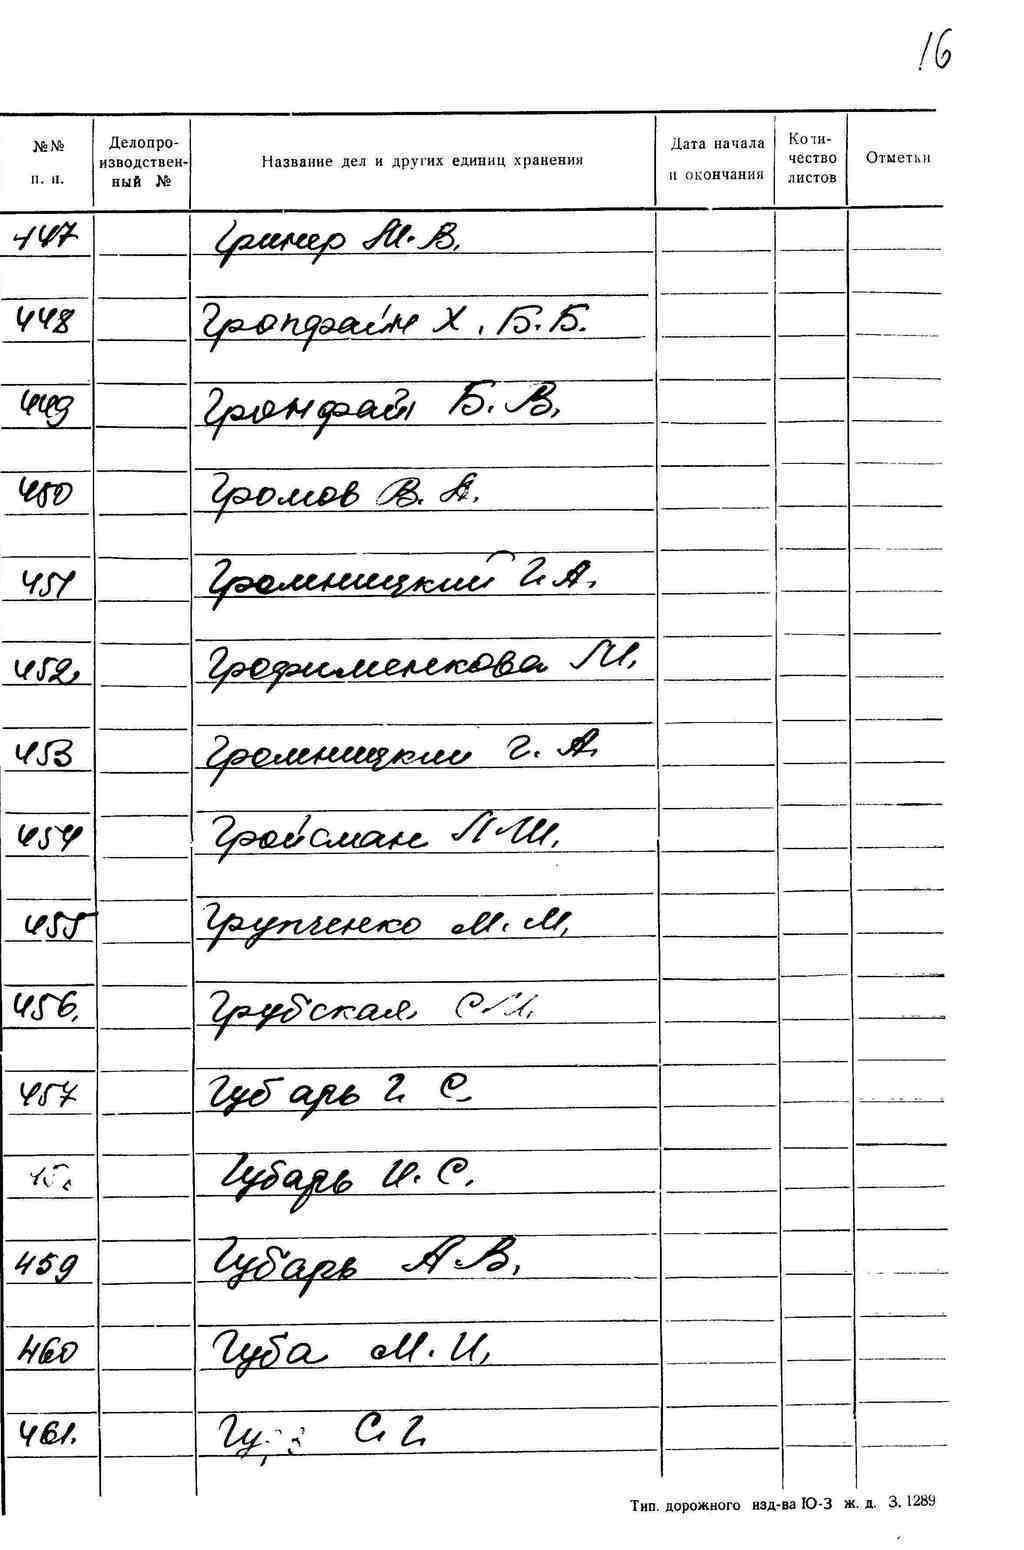 16
№№ п. п. Делопро-изводствен-ный № Название дел и других единиц хранения Дата начала и окончания Коли-чество листов Отметки
447 Гринер М. В.
448 Гропфайн Х. Б. Б.
449 Гронфайн Б. В.
450 Громов В. А.
451 Громницкий Г. А.
452. Грофименкова М.
453 Громницкий Г. А.
454 Гройсман Л Ш.
455 Групченко М. М.
456. Грубская С.
457 Губарь Г С.
Губарь И. С.
459 Губарь А В.
460 Губа М. И.
461. С. Г.
Тип. дорожного изд-ва Ю-З ж. д. З. 1289